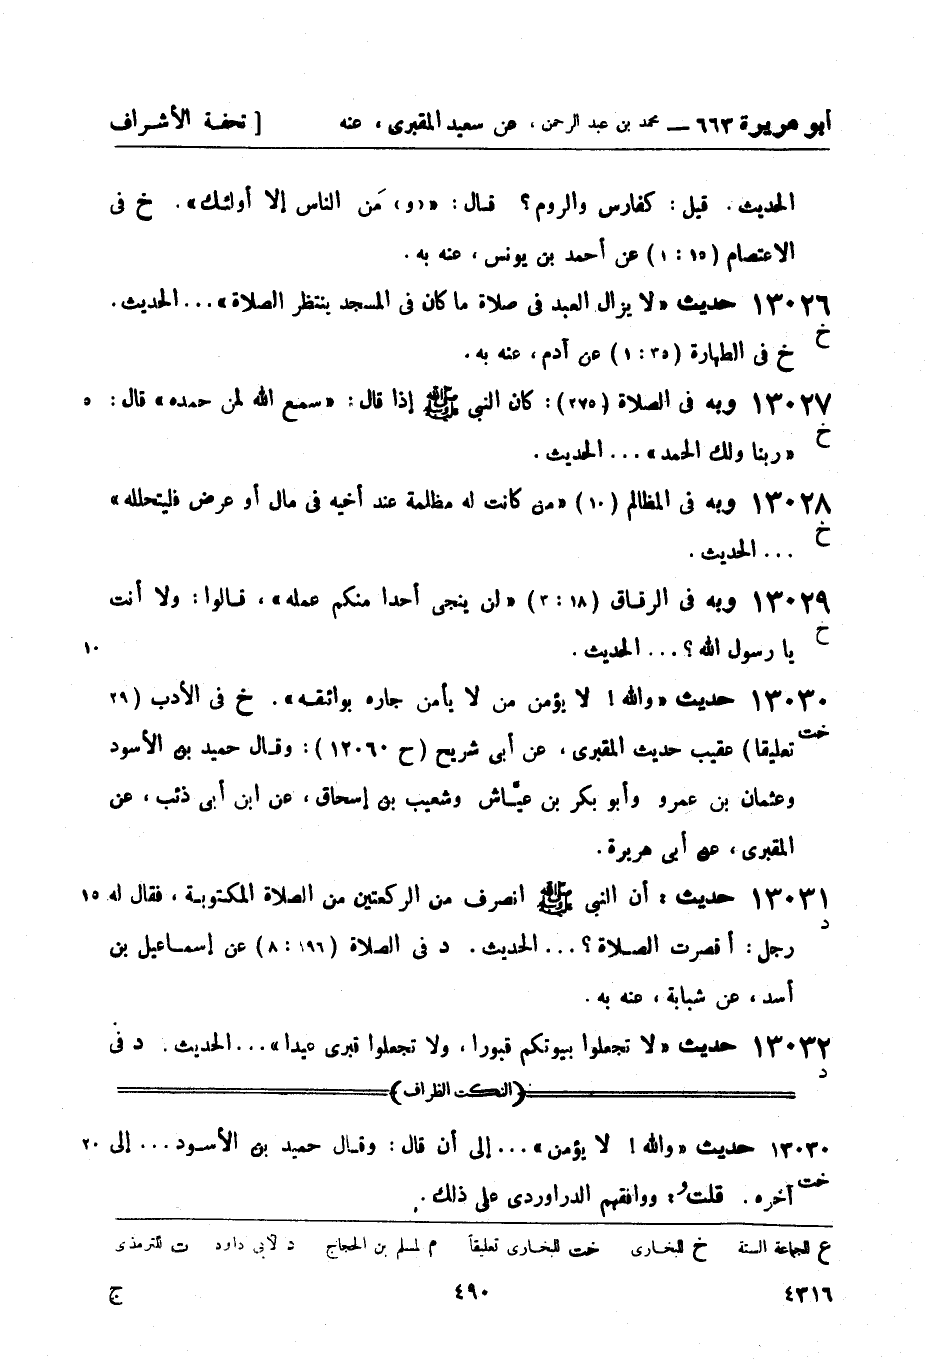 أبو هريرة ٦٦٣ — محمد بن عبد الرحمن، عن سعيد المقبرى، عنه [ تحفة الأشراف
الحديث. قيل: كفارس والروم؟ قال: «(و) مَن الناس إلا أولئك». خ فى
الاعتصام (١٥ : ١) عن أحمد بن يونس، عنه به.
١٣٠٢٦ حديث «لا يزال العبد فى صلاة ما كان فى المسجد ينتظر الصلاة»... الحديث.
خ
خ فى الطهارة (٣٥ : ١) عن آدم، عنه به.
١٣٠٢٧ وبه فى الصلاة (٢٧٥): كان النبي ﷺ إذا قال: «سمع الله لمن حمده» قال: ٥
خ
«ربنا ولك الحمد»... الحديث.
١٣٠٢٨ وبه فى المظالم (١٠) «من كانت له مظلمة عند أخيه فى مال أو عرض فليتحلله»
خ
... الحديث.
١٣٠٢٩ وبه فى الرقاق (١٨ : ٣) «لن ينجى أحدا منكم عمله»، قالوا: ولا أنت
خ
يا رسول الله؟... الحديث. ١٠
١٣٠٣٠ حديث «والله! لا يؤمن من لا يأمن جاره بوائقه». خ فى الأدب (٢٩
خت
تعليقا) عقيب حديث المقبرى، عن أبى شريح (ح ١٢٠٦٠): وقال حميد بن الأسود
وعثمان بن عمرو وأبو بكر بن عيّاش وشعيب بن إسحاق، عن ابن أبى ذئب، عن
المقبرى، عن أبى هريرة.
١٣٠٣١ حديث: أن النبي ﷺ انصرف من الركعتين من الصلاة المكتوبة، فقال له ١٥
د
رجل: أقصرت الصلاة؟... الحديث. د فى الصلاة (١٩٦ : ٨) عن إسماعيل بن
أسد، عن شبابة، عنه به.
١٣٠٣٢ حديث «لا تجعلوا بيوتكم قبورا، ولا تجعلوا قبرى عيدا»... الحديث. د فى
د
(النكت الظراف)
١٣٠٣٠ حديث «والله! لا يؤمن»... إلى أن قال: وقال حميد بن الأسود... إلى ٢٠
خت
آخره. قلت: ووافقهم الدراوردى على ذلك.
ع للجماعة الستة خ للبخارى خت للبخارى تعليقاً م لمسلم بن الحجاج د لأبى داود ت للترمذى
٤٣١٦ ٤٩٠ ج